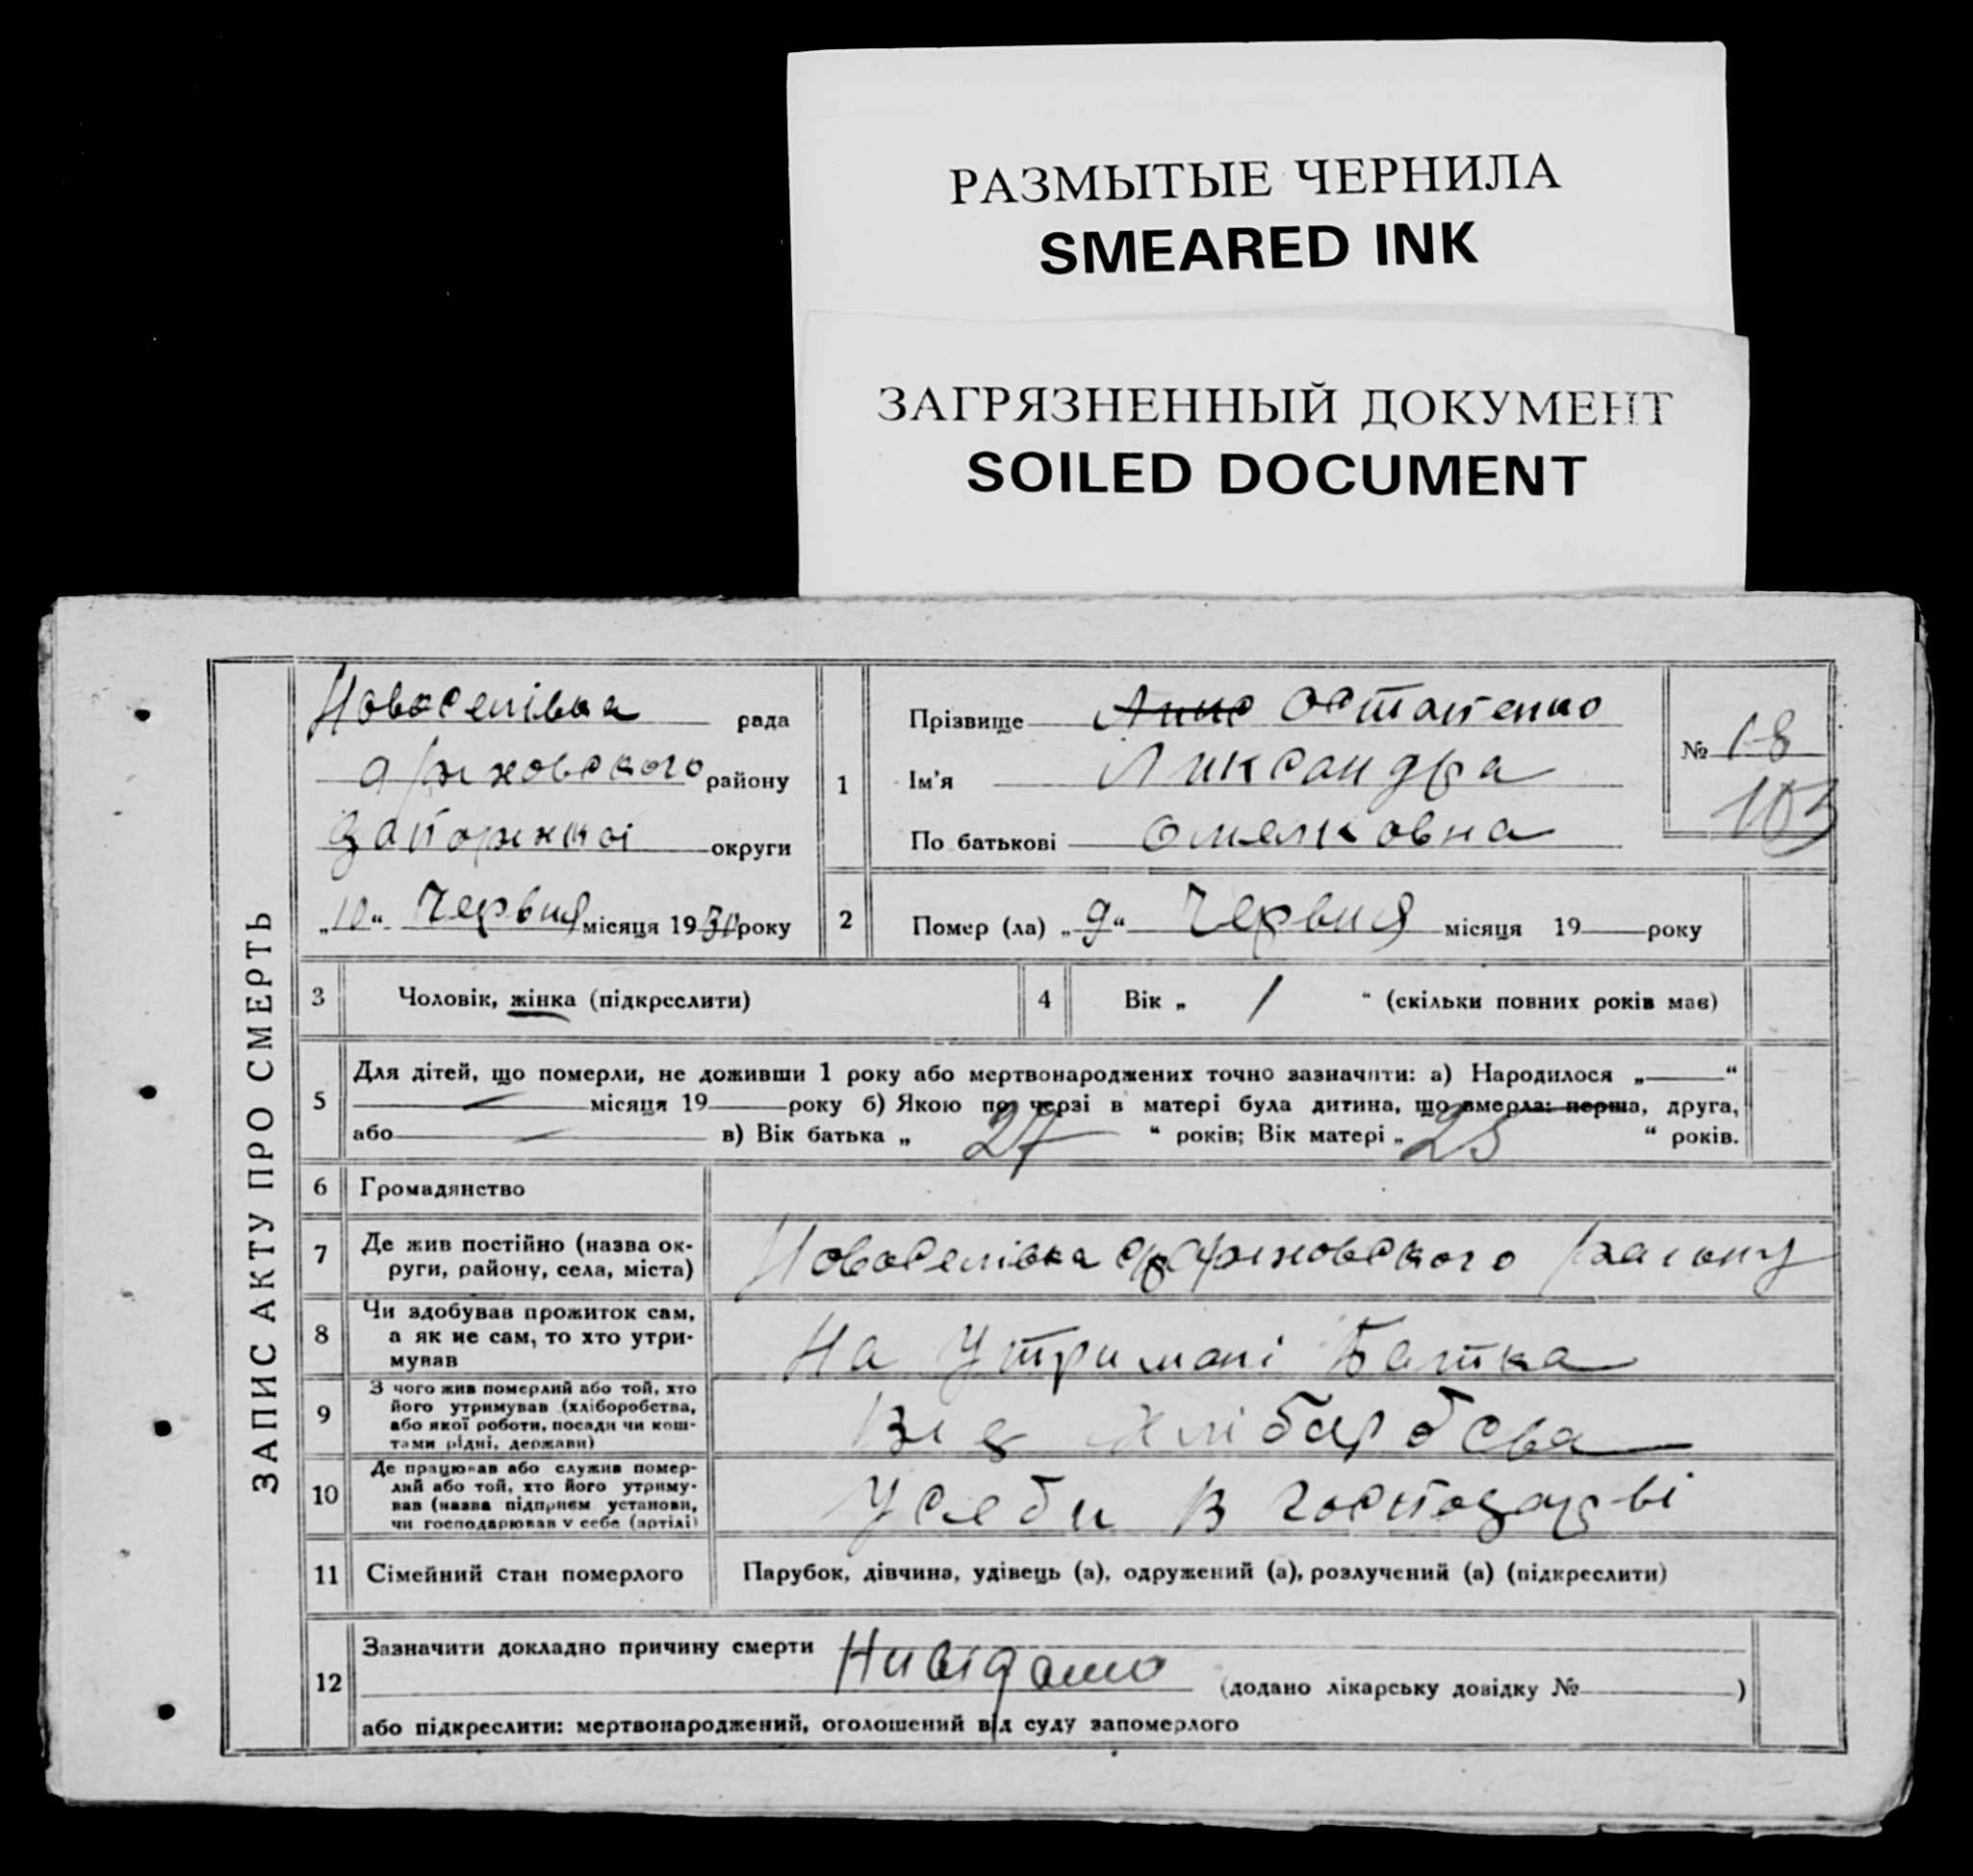 РАЗМЫТЫЕ ЧЕРНИЛА
SMEARED INK
ЗАГРЯЗНЕННЫЙ ДОКУМЕНТ
SOILED DOCUMENT
ЗАПИС АКТУ ПРО СМЕРТЬ
Новоселівка рада
району
округи
„10“ Червня місяця 1930 року
1
Прізвище Остапенко
Ім'я Ликсандра
По батькові Омелковна
№ 18
103
2 Помер (ла) „9“ Червня місяця 19 року
3 Чоловік, жінка (підкреслити)
4 Вік „ 1 “ (скільки повних років має)
5 Для дітей, що померли, не доживши 1 року або мертвонароджених точно зазначити: а) Народилося „ “
місяця 19 року б) Якою по черзі в матері була дитина, що вмерла: перша, друга,
або в) Вік батька „ 27 “ років; Вік матері „ 25 “ років.
6 Громадянство
7 Де жив постійно (назва ок-
руги, району, села, міста)
Новоселівка району
8 Чи здобував прожиток сам,
а як не сам, то хто утри-
мував
На Утримані Батка
9 З чого жив померлий або той, хто
його утримував (хліборобства,
або якої роботи, посади чи кош-
тами рідні, держави)
Від
10 Де працював або служив помер-
лий або той, хто його утриму-
вав (назва підприєм. установи,
чи господарював у себе (артілі)
У себи В господарві
11 Сімейний стан померлого Парубок, дівчина, удівець (а), одружений (а), розлучений (а) (підкреслити)
12 Зазначити докладно причину смерти Нивідомо
(додано лікарську довідку № )
або підкреслити: мертвонароджений, оголошений від суду запомерлого